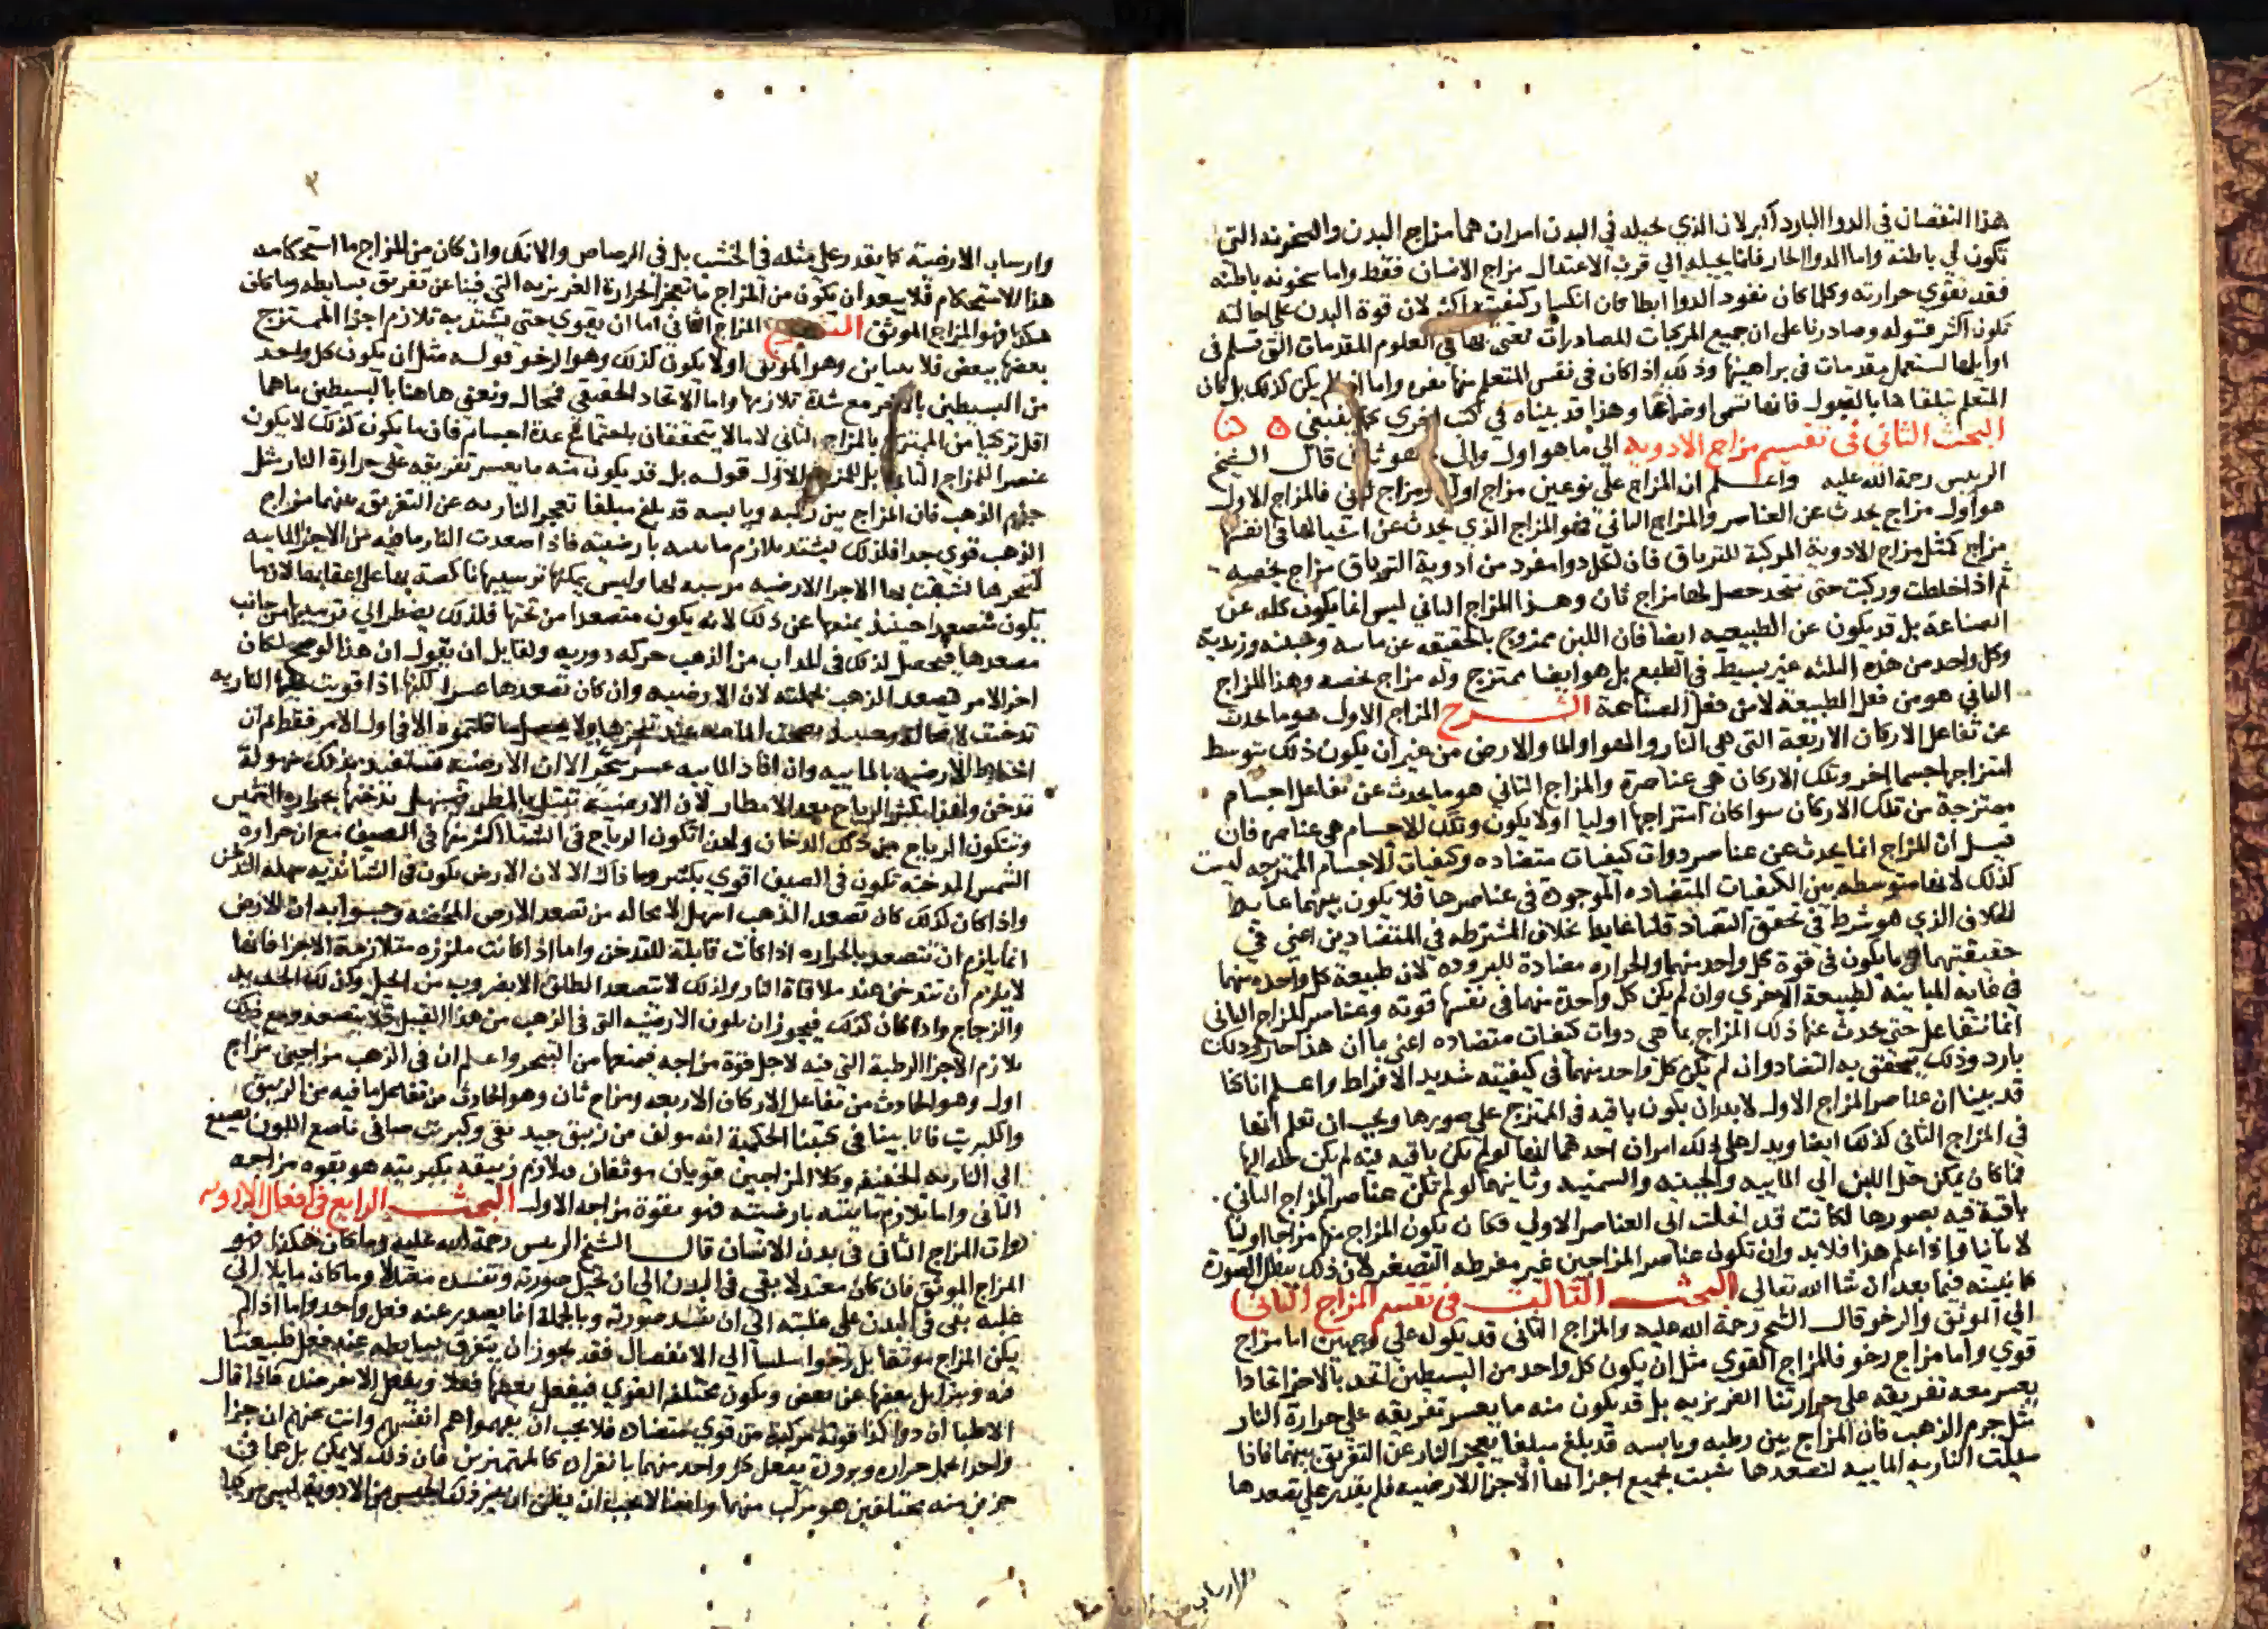 هذا النقصان في الدوا البارد اكبر لان الذي يحيله في البدن امران هما مزاج البدن والسخونه التى
تكون في باطنه واما الدوا الحار فانما يحيله الي قرب الاعتدال مزاج الانسان فقط واما سخونه باطنه
فقد تقوي حرارته وكلما كان نفود الدوا ابطا كان انكسار كيفيته اكثر لان قوة البدن على احالته
تكون اكثر قوله وصادرنا على ان جميع المركبات المصادرات تعنى بها في العلوم المقدمات التى تسلم فى
اوايلها لتستعمل مقدمات فى براهينها وذلك اذا كان فى نفس المتعلم منها نفره واما اذا لم يكن كذلك بل كان
المتعلم يتلقاها بالقبول فانها تسمى اوضاعا وهذا قد بيناه في كتب اخري كما ينبغي
البحث الثاني فى تقسيم مزاج الادويه الي ما هو اول والى ما هو ثان قال الشيخ
الريس رحمة الله عليه واعلم ان المزاج على نوعين مزاج اول ومزاج ثانى فالمزاج الاول
هو اول مزاج يحدث عن العناصر والمزاج الثانى هو المزاج الذي يحدث عن اشيا لها فى انفسها
مزاج كمثل مزاج الادوية المركبة للترياق فان لكل دوا مفرد من ادوية الترياق مزاج يخصه
ثم اذا خلطت وركبت حتى تتحد حصل لها مزاج ثان وهذا المزاج الثاني ليس انما يكون كله عن
الصناعة بل قد يكون عن الطبيعيه ايضا فان اللبن ممزوج بالحقيقه عن مايه وجبنه وزبدية
وكل واحد من هذه الثلثه غير بسيط في الطبع بل هو ايضا ممتزج وله مزاج يخصه وهذا المزاج
الثاني هو من فعل الطبيعة لا من فعل الصناعة الشرح المزاج الاول هو ما يحدث
عن تفاعل الاركان الاربعة التى هى النار والهوا والما والارض من غير ان يكون ذلك بتوسط
امتزاجها جسما اخر وتلك الاركان هى عناصره والمزاج الثاني هو ما يحدث عن تفاعل اجسام
ممتزجة من تلك الاركان سوا كان امتزاجها اوليا اولا يكون وتلك الاجسام هى عناصره فان
قيل ان المزاج انما يحدث عن عناصر دوات كيفيات متضاده وكيفيات الاجسام الممتزجه ليست
كذلك لانها متوسطه بين الكيفيات المتضاده الموجودة فى عناصرها فلا يكون بينهما غاية
الخلاف الذي هو شرط في تحقق التضاد قلنا غاية الخلاف المشترطه في المتضادين اعنى في
حقيقتهما لا ما يكون فى قوة كل واحد منهما والحراره مضادة للبروده لان طبيعة كل واحده منهما
في غاية المباينه لطبيعة الاخري وان لم يكن كل واحدة منهما فى نفسها قوته وعناصر المزاج الثانى
انما تتفاعل حتى يحدث عنها ذلك المزاج بما هى دوات كيفيات متضاده اعنى بما ان هذا حار وذلك
بارد وذلك يتحقق به التضاد وان لم يكن كل واحد منهما فى كيفيته شديد الافراط واعلم اننا كنا
قد بينا ان عناصر المزاج الاول لابد ان يكون باقيه فى الممتزج على صورها ويجب ان تعلم انها
في المزاج الثاني كذلك ايضا ويدل على ذلك امران احدهما انها لو لم تكن باقيه فيه لم يكن حله اليها
فما كان يمكن حل اللبن الي الماييه والجبنيه والسمنيه وثانيهما لو لم تكن عناصر المزاج الثاني
باقية فيه بصورها لكانت قد انحلت الى العناصر الاولي فكان يكون المزاج منها مزاجا اوليا
لا ثانيا واذا علم هذا فلابد وان تكون عناصر المزاجين غير مفرطه التصغر لان ذلك يبطل الصورة
كما نبينه فيما بعد ان شا الله تعالى البحث الثالث فى تقسيم المزاج الثاني
الي الموثق والرخو قال الشيخ رحمة الله عليه والمزاج الثانى قد يكون علي وجهين اما مزاج
قوي واما مزاج رخو فالمزاج القوي مثل ان يكون كل واحد من البسيطين اتحد بالاخر اتحادا
يعسر معه تفريقه على حرارتنا الغريزيه بل قد يكون منه ما يعسر تفريقه علي حرارة النار
مثل جرم الذهب فان المزاج بين رطبه ويابسه قد بلغ مبلغا يعجز النار عن التفريق بينهما فاذا
سيلت الناريه الماييه لتصعدها تشبث بجميع اجزائها الاجزا الارضيه فلم يقدر علي تصعدها
وارساب الارضية كما يقدر على مثله فى الخشب بل فى الرصاص والانك وان كان من المزاج ما استحكامه
هذا الاستحكام فلا يبعد ان يكون من المزاج ما تعجز الحرارة الغريزيه التي فينا عن تفريق بسايطه وما كان
هكذا فهو المزاج الموثق الشرح المزاج الثاني اما ان يقوي حتى يشتد به تلازم اجزا الممتزج
بعضها ببعض فلا يتباين وهو الموثق اولا يكون كذلك وهو الرخو قوله مثل ان يكون كل واحد
من البسيطين بالاخر مع شدة تلازمها واما الاتحاد الحقيقي فمحال ونعني هاهنا بالبسيطين ما هما
اقل تركيبا من الممتزج بالمزاج الثاني لا ما لا يتحققان باجتماع عدة اجسام فان ما يكون كذلك لا يكون
عنصرا للمزاج الثانى بل للمزاج الاول قوله بل قد يكون منه ما يعسر تفريقه على حرارة النار مثل
جرم الذهب فان المزاج بين رطبه ويابسه قد بلغ مبلغا تعجز الناريه عن التفريق بينهما مزاج
الذهب قوي جدا فلذلك يشتد تلازم ماييته بارضيته فاذا صعدت النار ما فيه من الاجزا الماييه
لتبخرها تشبثت بها الاجزا الارضيه مرسبه لها وليس يمكنها ترسيبها ناكصة بها على اعقابها لان ما
يكون متصعدا حينئذ يمنعها عن ذلك لانه يكون متصعدا من تحتها فلذلك يضطر الي ترسيبها من جانب
مصعدها فيحصل لذلك فى المذاب من الذهب حركه دوريه ولقايل ان يقول ان هذا لو صح لكان
اخر الامر يتصعد الذهب بجملته لان الارضيه وان كان تصعدها عسرا لكنها اذا قويت عليها الناريه
تدخنت لا محالة
اختلاط الارضيه بالماييه وان افاد الماييه عسر تبخر الا ان الارضيه تستفيد بذلك سهولة
تدخن ولهذا يكثر الرياح بعد الامطار لان الارضية تبتل بالمطر فيسهل تدخنها بحراره الشمس
وتتكون الرياح من ذلك الدخان ولهذا تكون الرياح فى الشتا اكثر منها فى الصيف مع ان حراره
الشمس المدخنه تكون فى الصيف اقوي بكثير وما ذاك الا لان الارض يكون فى الشتا نديه سهله التدخن
واذا كان كذلك كان تصعد الذهب اسهل لا محاله من تصعد الارض المحضه وجوابه ان الارض
انما يلزم ان تتصعد بالحراره اذا كانت قابلة للتدخن واما اذا كانت ملززه متلازمة الاجزا فانها
لا يلزم ان تتدخن عند ملاقاة النار ولذلك لا تتصعد الطلق الا بضروب من الحيل وكذلك الحديد
والزجاج واذا كان كذلك فيجوز ان يكون الارضيه التى فى الذهب من هذا القبيل فلا يتصعد ومع ذلك
يلازم الاجزا الرطبة التي فيه لاجل قوة مزاجه فيمنعها من التبخر واعلم ان فى الذهب مزاجين مزاج
اول وهو الحادث من تفاعل الاركان الاربعه ومزاج ثان وهو الحادث من تفاعل ما فيه من الزيبق
والكبريت فانا بينا فى كتبنا الحكمية انه مولف من زيبق جيد نقى وكبريت صافى ناصع اللون يصبغ
الى الناريه الخفيفه وكلا المزاجين قويان موثقان فتلازم زيبقه بكبريتيه هو بقوه مزاجه
الثانى واما تلازم ماييته بارضيته فهو بقوة مزاجه الاول البحث الرابع فى افعال الادويه
ذوات المزاج الثانى فى بدن الانسان قال الشيخ الريس رحمة الله عليه وما كان هكذا فهو
المزاج الموثق فان كان معتدلا بقى فى البدن الي ان تحيل صورته وتفسده معتدلا وما كان مايلا الى
غلبه بقى فى البدن على غلبته الي ان تفسد صورته وبالجملة انما يصدر عنه فعل واحد واما اذا لم
يكن المزاج موثقا بل رخوا سلسا الي الانفصال فقد يجوز ان يتفرق بسايطه عند فعل طبيعتنا
فيه ويتزايل بعضها عن بعض ويكون مختلفه القوي فيفعل بعضها فعلا ويفعل الاخر ضده فاذا قال
الاطبا ان دوا كذا قوته مركبة من قوي متضاده فلا يجب ان يفهموا هم انفسهم وانت عنهم ان جزا
واحدا يحمل حراره وبرودة يفعل كل واحد منهما بانفراده كالمتميزين فان ذلك لا يمكن بل هما فى
جزءين منه مختلفين هو مركب منهما وايضا لا يجب ان يظن ان غير ذلك الجنس من الادويه ليس مركبا